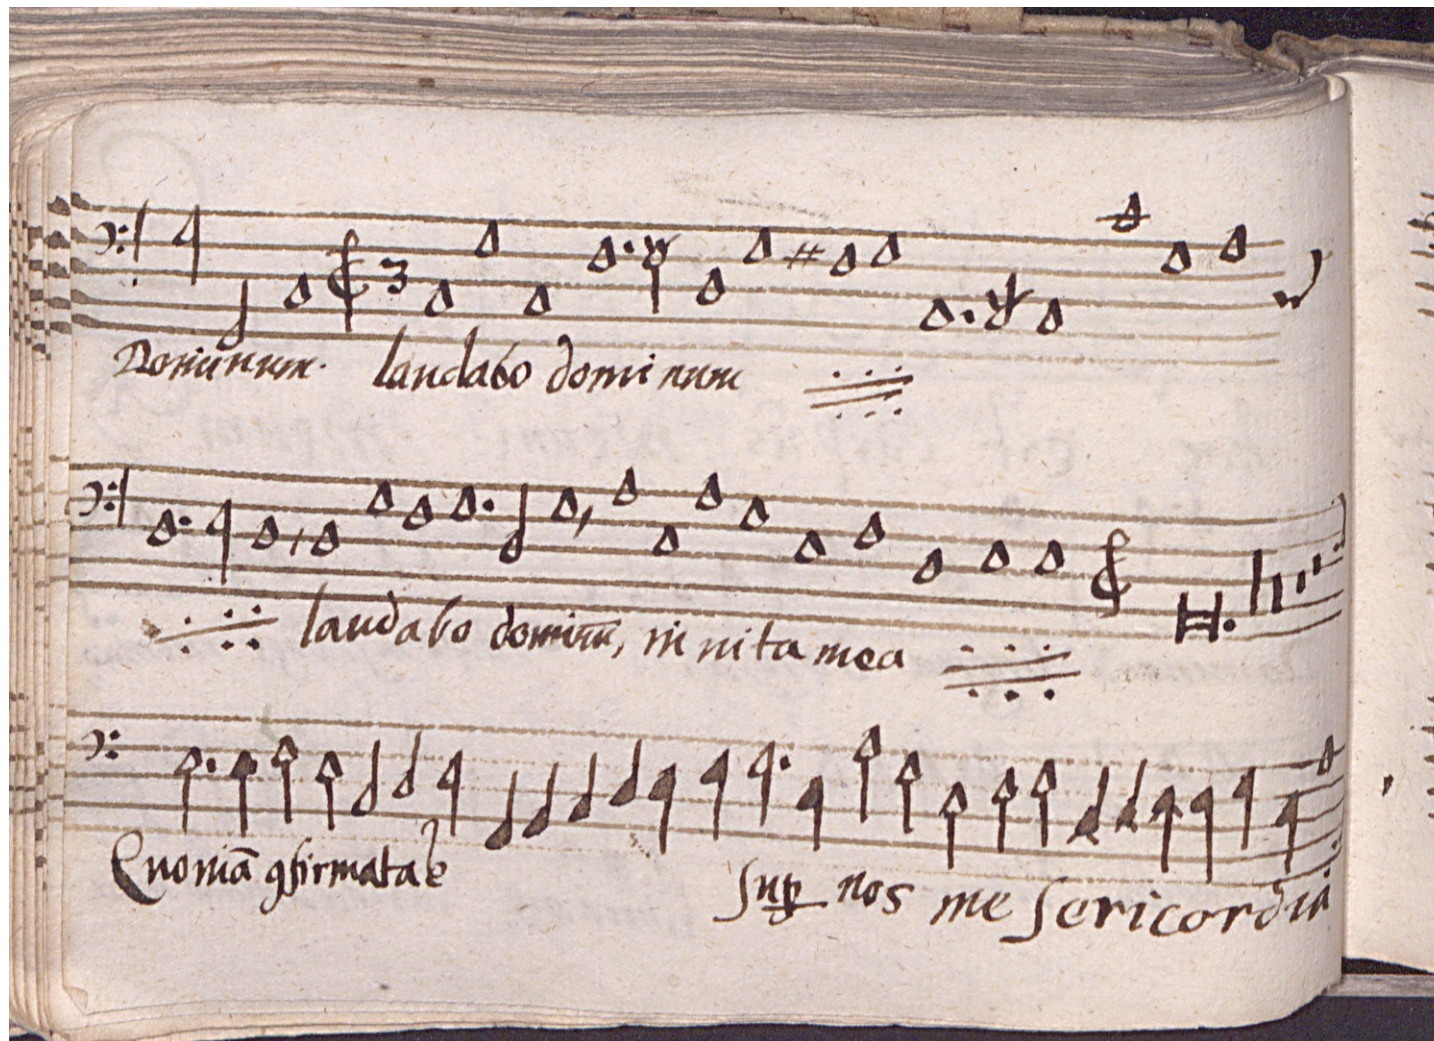 Dominum. laudabo dominum
laudabo dominũ, in vita mea
Quoniã ꝯfirmata ẽ Suꝑ nos me sericordia